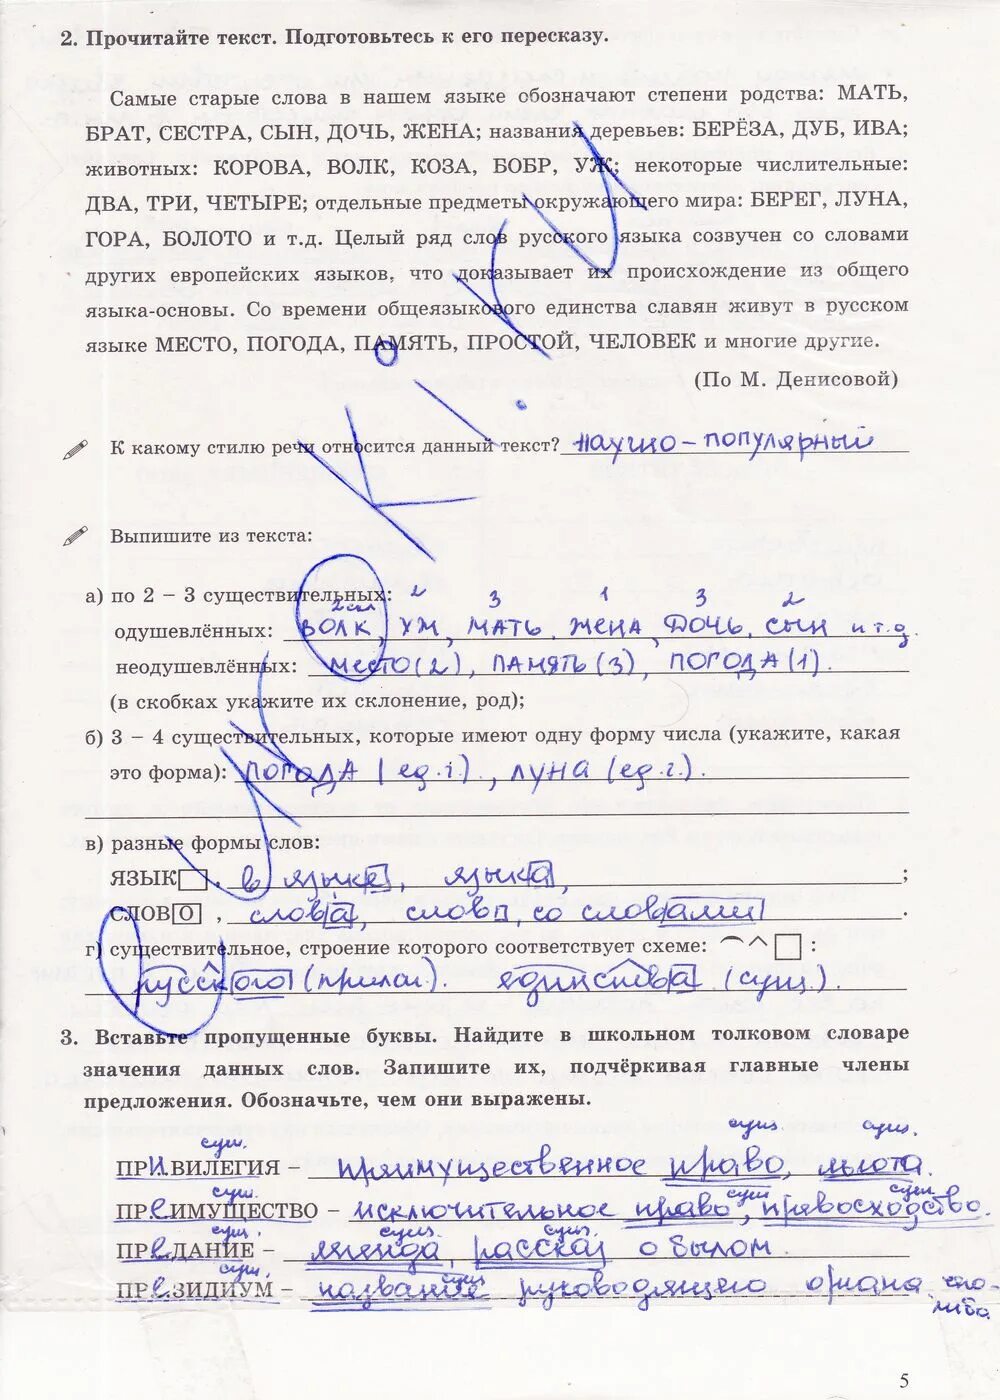 2. Прочитайте текст. Подготовьтесь к его пересказу.
Самые старые слова в нашем языке обозначают степени родства: МАТЬ,
БРАТ, СЕСТРА, СЫН, ДОЧЬ, ЖЕНА; названия деревьев: БЕРЁЗА, ДУБ, ИВА;
животных: КОРОВА, ВОЛК, КОЗА, БОБР, УЖ; некоторые числительные:
ДВА, ТРИ, ЧЕТЫРЕ; отдельные предметы окружающего мира: БЕРЕГ, ЛУНА,
ГОРА, БОЛОТО и т.д. Целый ряд слов русского языка созвучен со словами
других европейских языков, что доказывает их происхождение из общего
языка-основы. Со времени общеязыкового единства славян живут в русском
языке МЕСТО, ПОГОДА, ПАМЯТЬ, ПРОСТОЙ, ЧЕЛОВЕК и многие другие.
(По М. Денисовой)
К какому стилю речи относится данный текст? научно-популярный
Выпишите из текста:
а) по 2 – 3 существительных:
2скл 2 3 1 3 2
одушевлённых: ВОЛК, УЖ, МАТЬ, ЖЕНА, ДОЧЬ, СЫН и т.д.
неодушевлённых: МЕСТО(2), ПАМЯТЬ(3), ПОГОДА(1).
(в скобках укажите их склонение, род);
б) 3 – 4 существительных, которые имеют одну форму числа (укажите, какая
это форма): ПОГОДА (ед.ч.), ЛУНА (ед.ч.).
в) разные формы слов:
ЯЗЫК , в языке, языка, ;
СЛОВО , слова, слов , со словами .
г) существительное, строение которого соответствует схеме: :
русского (прилаг.). единства (сущ.).
3. Вставьте пропущенные буквы. Найдите в школьном толковом словаре
значения данных слов. Запишите их, подчёркивая главные члены
предложения. Обозначьте, чем они выражены.
сущ. сущ. сущ.
ПРИВИЛЕГИЯ – преимущественное право, льгота.
сущ. сущ. сущ.
ПРЕИМУЩЕСТВО – исключительное право, превосходство.
сущ. сущ. сущ.
ПРЕДАНИЕ – легенда, рассказ о былом.
сущ. сущ.
ПРЕЗИДИУМ – название руководящего органа чего-
либо.
5
УЖЕ